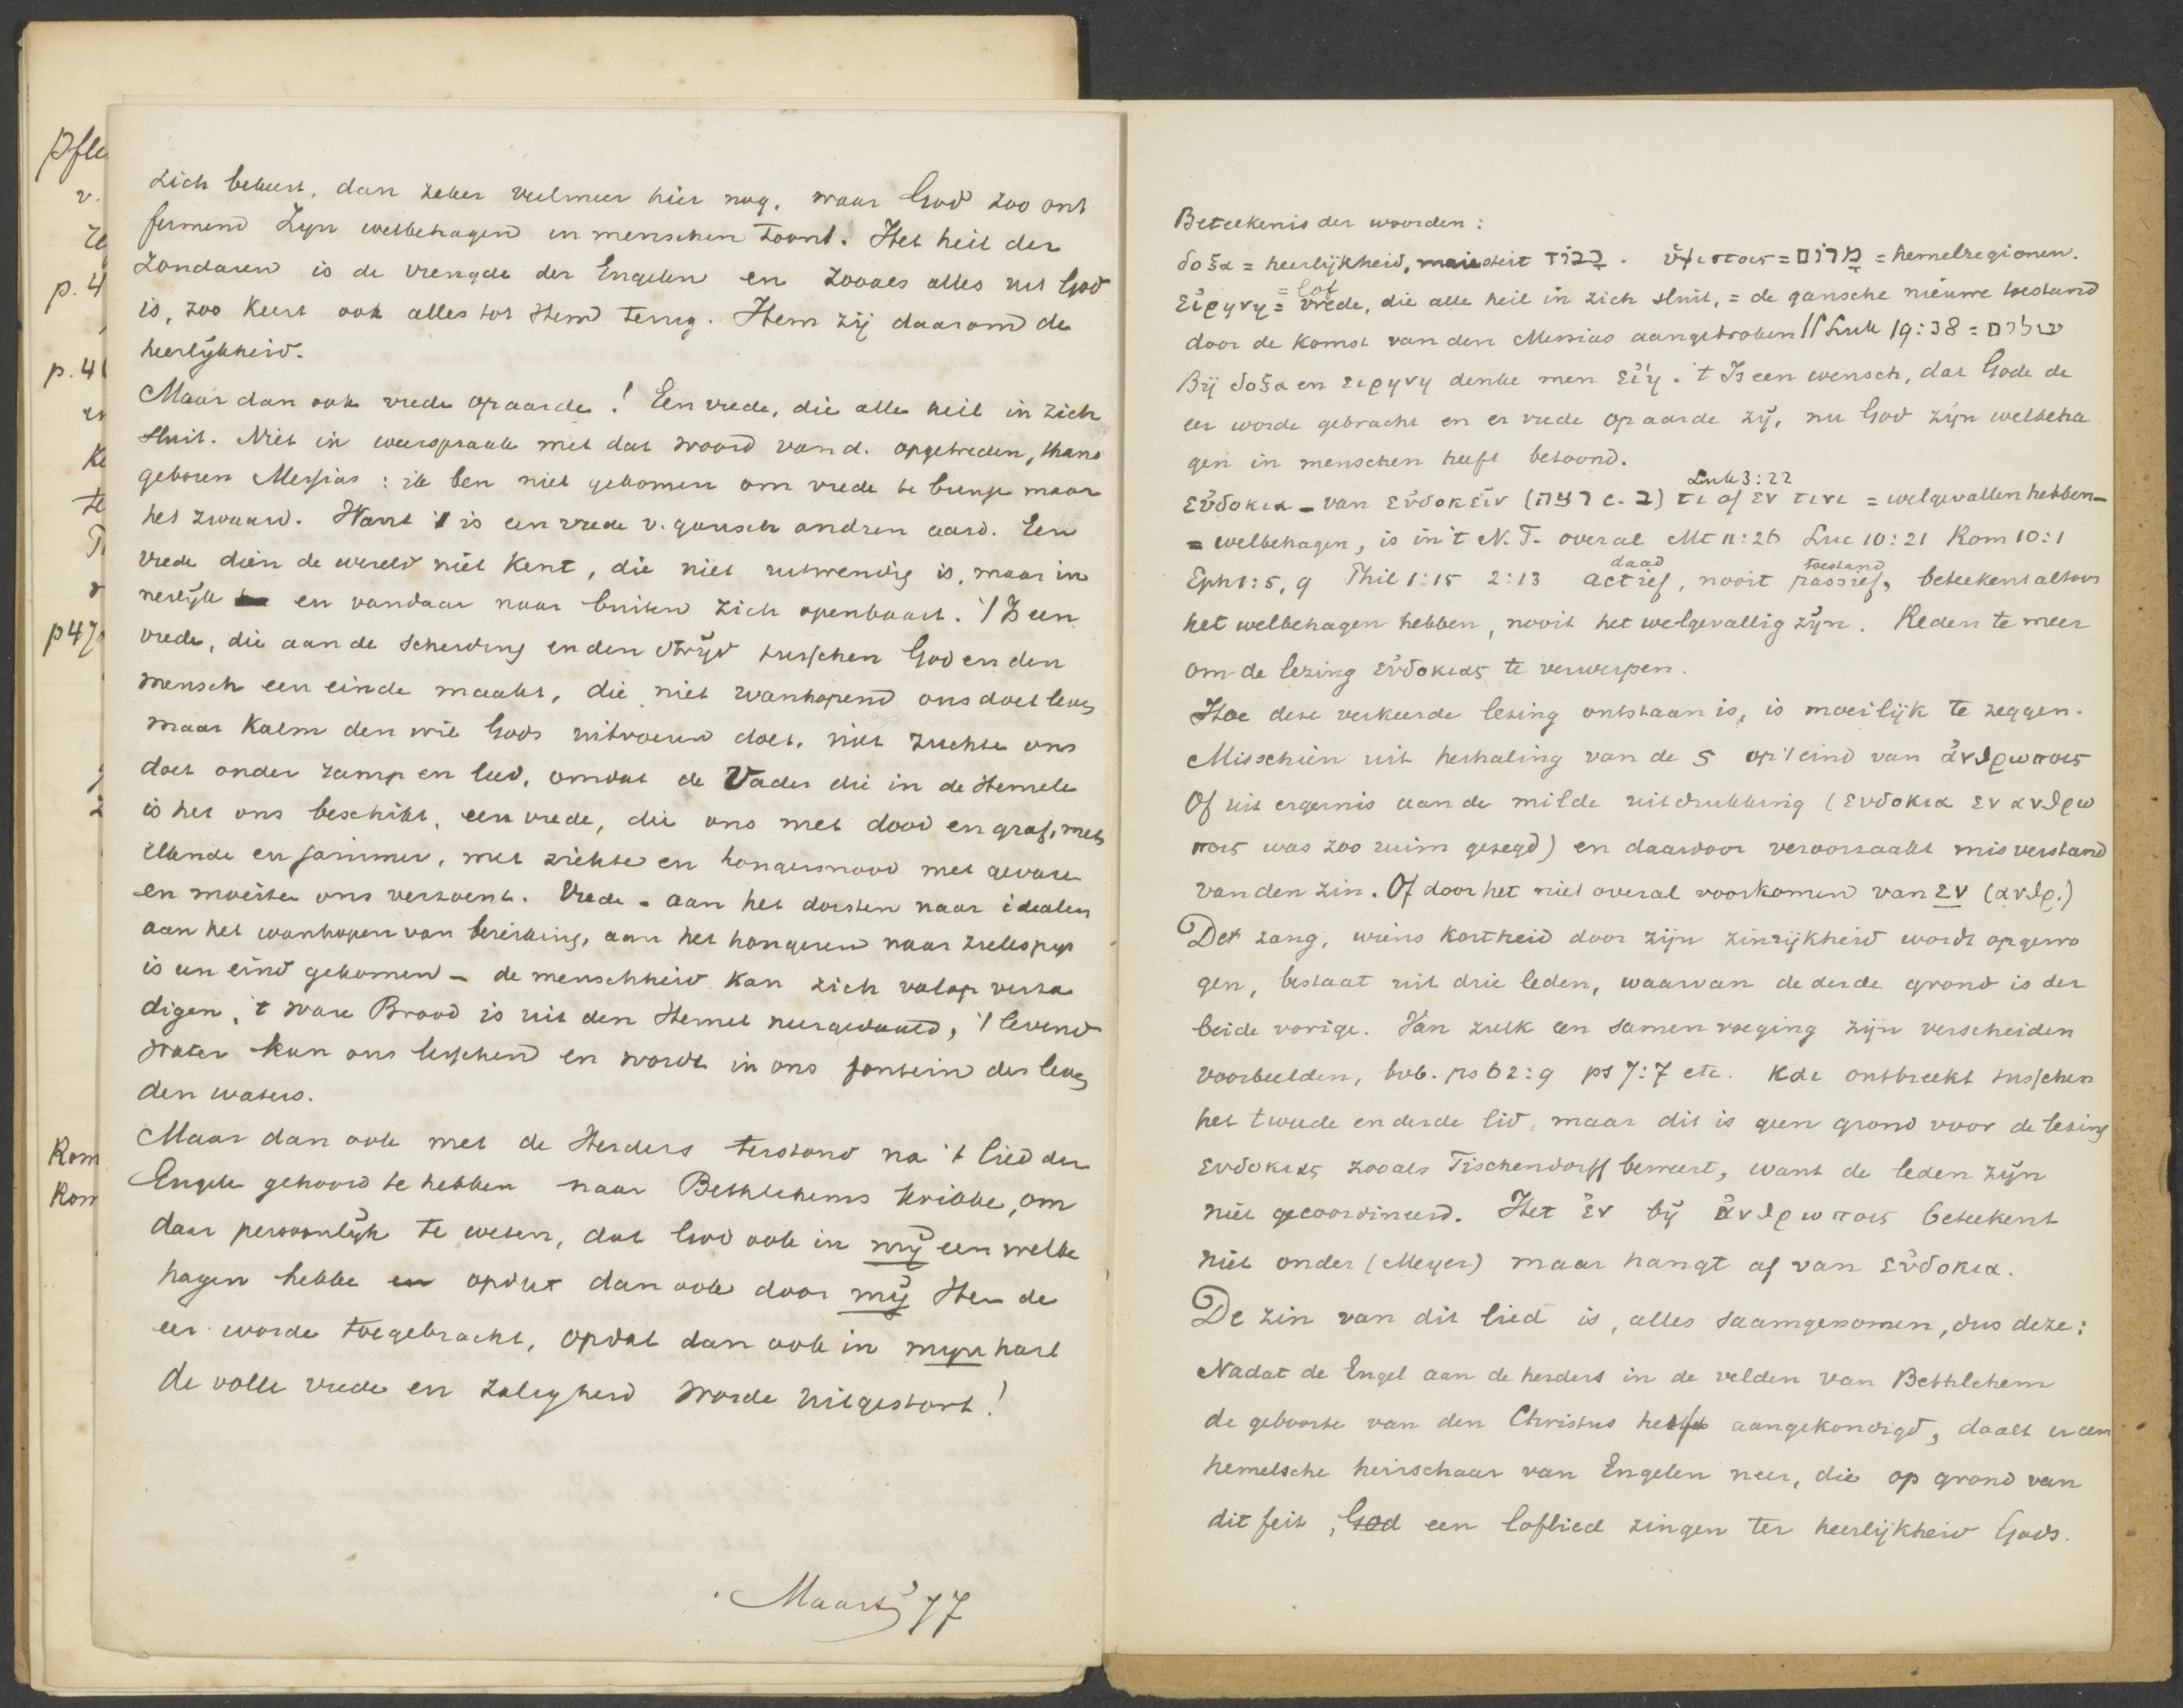 zich bekeert, dan zeker veelmeer hier nog, waar God zoo ont
fermend Zijn welbehagen in menschen toont. Het heil der
Zondaren is de vreugde der Engelen en zooals alles uit God
is, zoo keert ook alles tot Hem terug. Hem zij daarom de
heerlijkheid.
Maar dan ook vrede op aarde! Een vrede, die alle heil in zich
sluit. Niet in weerspraak met dat woord van d. opgetreden, thans
geboren Messias: ik ben niet gekomen om vrede te brenge maar
het zwaard. Want 't is een vrede v. gansch andren aard. Een
vrede dien de wereld niet kent, die niet uitwendig is, maar in
nerlijk en vandaar naar buiten zich openbaart. 't Is een
vrede, die aan de scheiding en den strijd tusschen God en den
mensch een einde maakt, die niet wanhopend ons doet leven
maar kalm den wil Gods uitvoeren doet, niet zuchten ons
doet onder ramp en leed, omdat de Vader die in de Hemele
is het ons beschikt, een vrede, die ons met dood en graf, met
ellende en jammer, met ziekte en hongersnood met gevare
en moeite ons verzoent. Vrede - aan het dorsten naar idealen
aan het wanhopen van bereiking, aan het hongeren naar zielespijs
is een eind gekomen - de menschheid kan zich volop verza
digen, 't ware Brood is uit den Hemel neergedaald, 't levend
water kan ons lesschen en wordt in ons fontein des leven
den waters.
Maar dan ook met de Herders terstond na 't lied der
Engele gehoord te hebben naar Bethlehems kribbe, om
daar persoonlijk te weten, dat God ook in mij een welbe
hagen hebbe en opdat dan ook door mij Hem de
eer worde toegebracht, opdat dan ook in mijn hart
de volle vrede en zaligheid worde uitgestort!
Maart 77
Pfle
v.
p. 4
p. 4
p 47
Rom
Rom
Beteekenis der woorden:
δοξα = heerlijkheid, maiesteit כָּבוֹד. ὕψιστοις = מָרוֹם = hemelregionen.
= lof
εἰρηνη = vrede, die alle heil in zich sluit, = de gansche nieuwe toestand
door de komst van den Messias aangebroken // Luk 19:38 = שלום
Bij δοξα en ειρηνη denke men εἴη. 't Is een wensch, dat Gode de
eer worde gebracht en er vrede op aarde zij, nu God zijn welbeha
gen in menschen heeft betoond.
Luk 3:22
εὐδοκια - van εὐδοκεῖν (רצה c. ב) τι of εν τινι = welgevallen hebben -
= welbehagen, is in 't N. T. overal Mt 11:26 Luc 10:21 Rom 10:1
daad toestand
Eph 1:5, 9 Phil 1:15 2:13 actief, nooit passief, beteekent altoos
het welbehagen hebben, nooit het welgevallig zijn. Reden te meer
om de lezing εὐδοκιας te verwerpen.
Hoe deze verkeerde lezing ontstaan is, is moeilijk te zeggen.
Misschien uit herhaling van de ς op 't eind van ἀνθρωποις
Of uit ergernis aan de milde uitdrukking (ευδοκια εν ανθρω
ποις was zoo ruim gezegd) en daardoor veroorzaakt misverstand
van den zin. Of door het niet overal voorkomen van εν (ανθρ.)
Der zang, wiens kortheid door zijn zinrijkheid wordt opgewo
gen, bestaat uit drie leden, waarvan de derde grond is der
beide vorige. Van zulk een samenvoeging zijn verscheiden
voorbeelden, bvb. ps 62:9 ps 7:7 etc. Kαι ontbreekt tusschen
het tweede en derde lid, maar dit is geen grond voor de lezing
ευδοκιας zooals Tischendorff beweert, want de leden zijn
niet gecoordineerd. Het ἐν bij ἀνθρωποις beteekent
niet onder (Meyer) maar hangt af van εὐδοκια.
De zin van dit lied is, alles saamgenomen, dus deze:
Nadat de Engel aan de herders in de velden van Bethlehem
de geboorte van den Christus heeft aangekondigd, daalt er een
hemelsche heirschaar van Engelen neer, die op grond van
dit feit, God een loflied zingen ter heerlijkheid Gods.